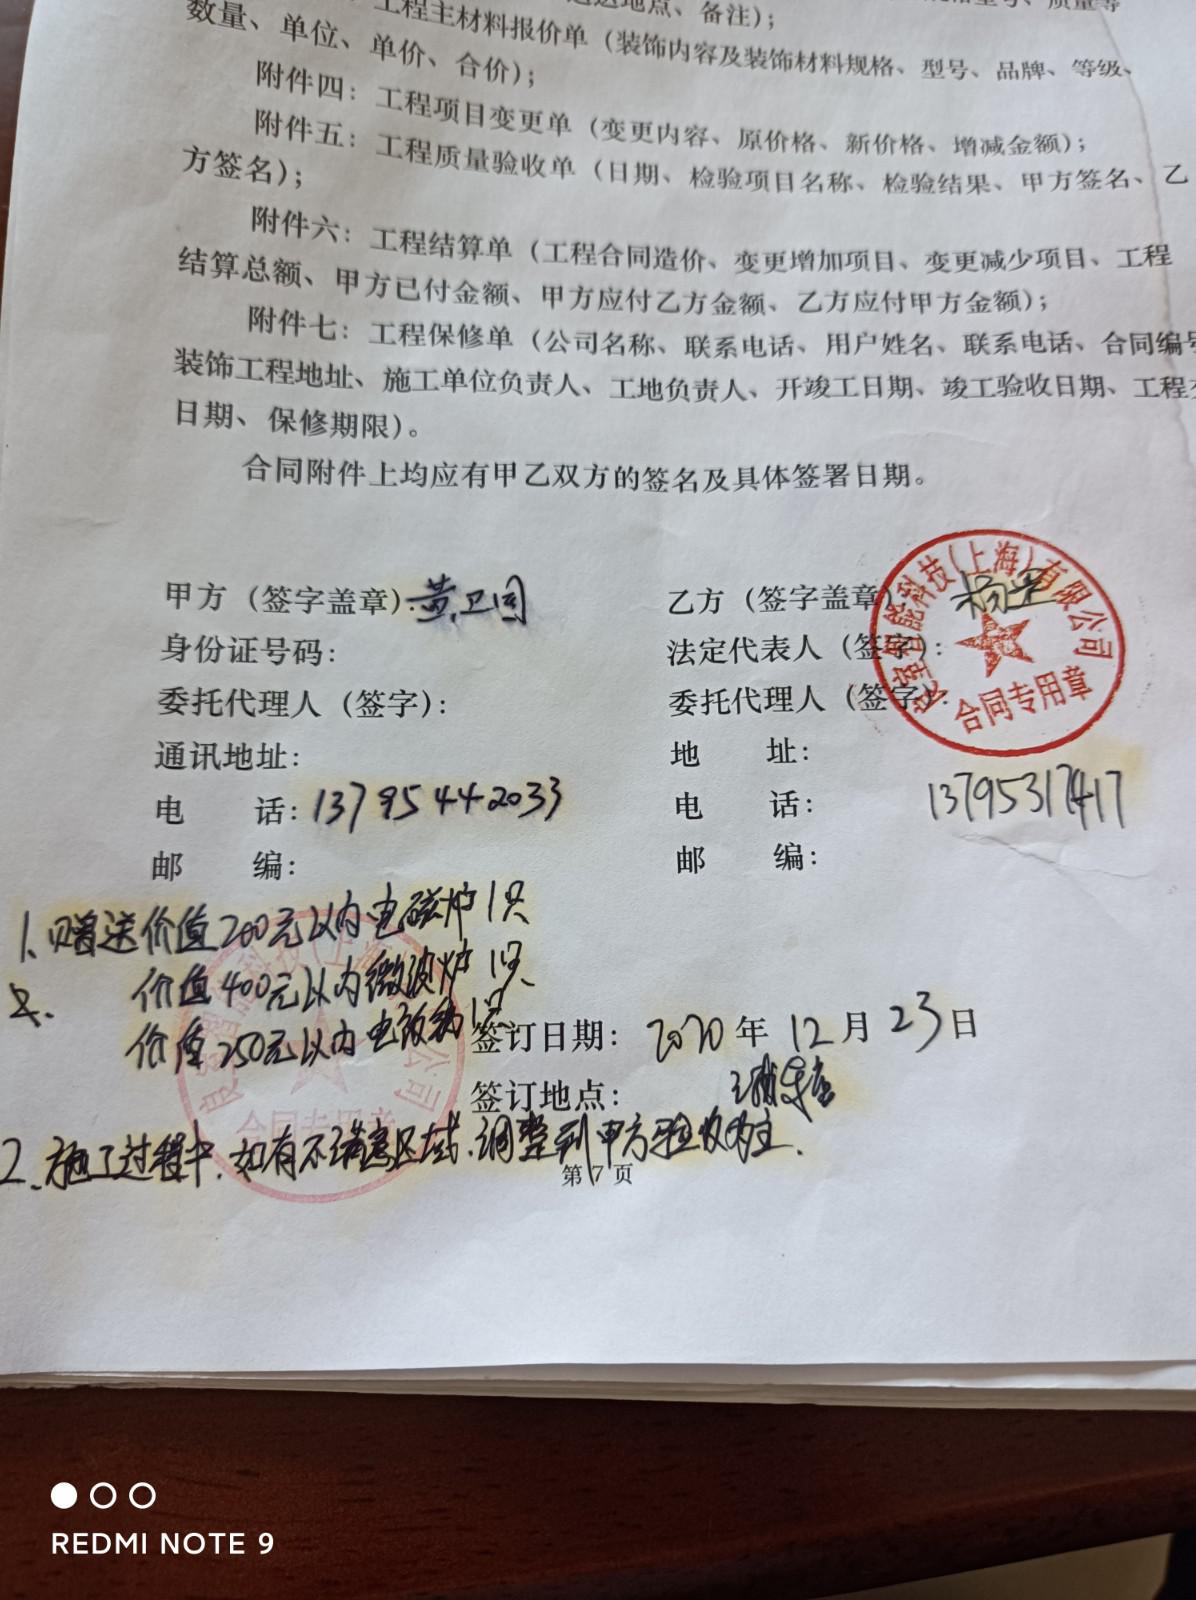 送达地点、备注);
工程主材料报价单（装饰内容及装饰材料规格、型号、品牌、等级、
数量、单位、单价、合价);
附件四：工程项目变更单（变更内容、原价格、新价格、增减金额);
附件五：工程质量验收单（日期、检验项目名称、检验结果、甲方签名、乙
方签名);
附件六：工程结算单（工程合同造价、变更增加项目、变更减少项目、工程
结算总额、甲方已付金额、甲方应付乙方金额、乙方应付甲方金额);
附件七：工程保修单（公司名称、联系电话、用户姓名、联系电话、合同编号
装饰工程地址、施工单位负责人、工地负责人、开竣工日期、竣工验收日期、工程
日期、保修期限)。
合同附件上均应有甲乙双方的签名及具体签署日期。
甲方（签字盖章): 黄卫国
乙方（签字盖章)
身份证号码:
法定代表人（签字):
委托代理人（签字):
委托代理人（签字):
智能科技(上海)有限公司
合同专用章
通讯地址:
地 址:
电 话: 13795442033
电 话: 13795317417
邮 编:
邮 编:
1、赠送价值200元以内电磁炉1只
价值400元以内微波炉1只
价值250元以内电饭锅1只
签订日期: 2020年12月23日
签订地点:
合同专用章
2、施工过程中,如有不满意区域,调整到甲方验收为主.
第7页
REDMI NOTE 9